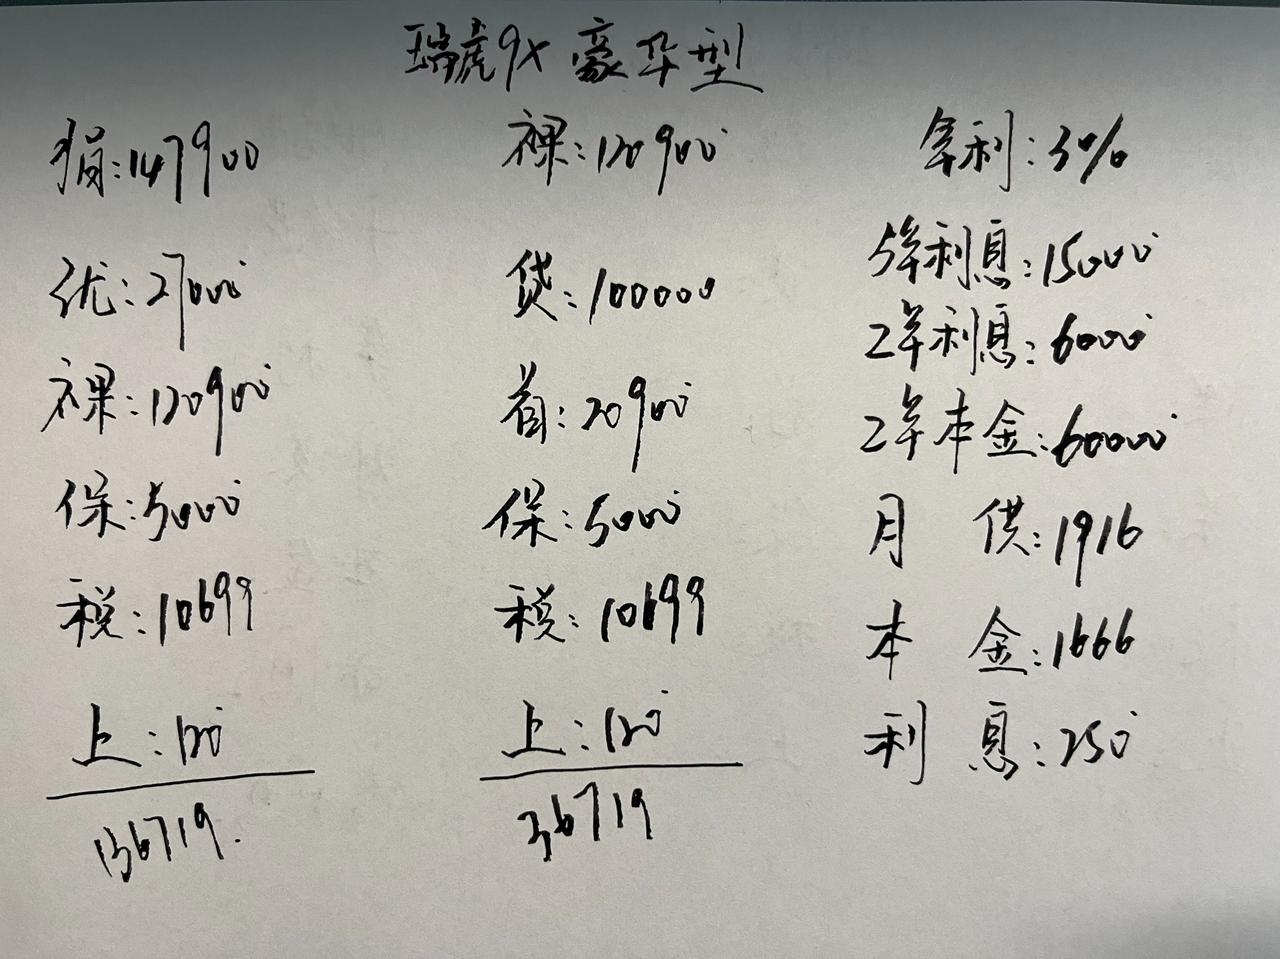 瑞虎9X豪华型
指:147900
优:27000
裸:120900
保:5000
税:10699
上:120
136719.
裸:120900
贷:100000
首:20900
保:5000
税:10699
上:120
36719
年利:3%
5年利息:15000
2年利息:6000
2年本金:60000
月供:1916
本金:1666
利息:250